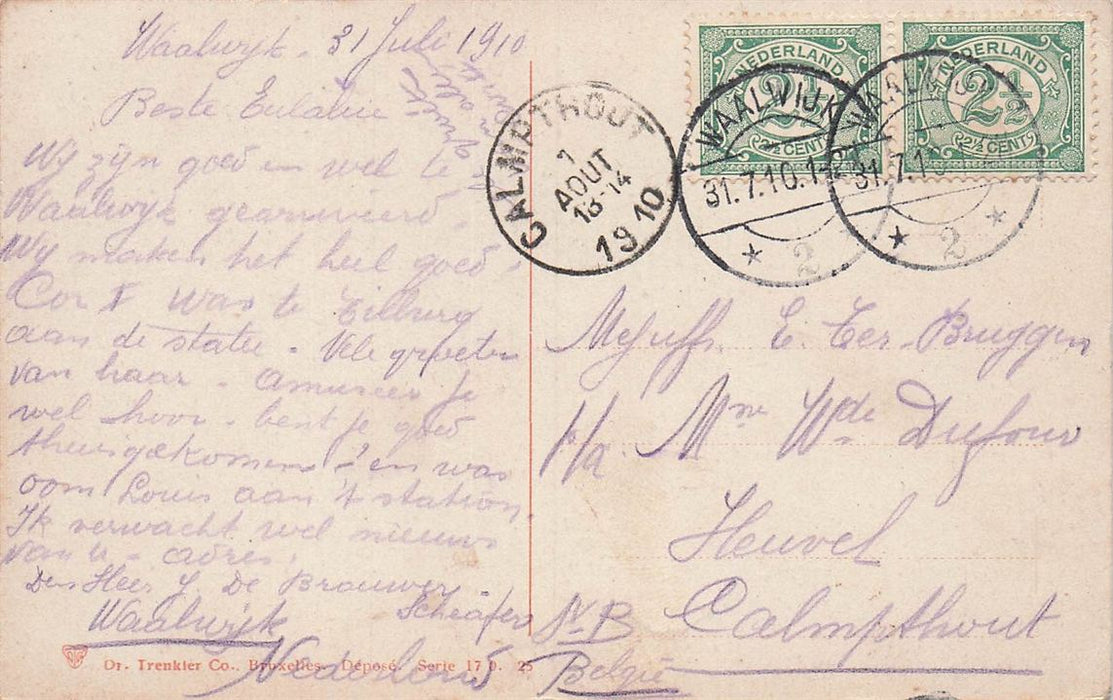 Waalwijk. 31 Juli 1910
Beste Eulalie
Wij zijn goed en wel te
Waalwijk gearriveerd
Wij maken het heel goed.
Cor was te Tilburg
aan de statie. Vele groeten
van haar. Amuseer je
wel hoor. bent je goed
thuisgekomen - en was
oom Louis aan 't station.
Ik verwacht wel nieuws
van u. adres.
Den Heer J. De Brouwer
Waalwijk
Nederland
CALMPTHOUT
1
AOUT
13-14
1910
NEDERLAND
2½
2½ CENT
NEDERLAND
2½
2½ CENT
WAALWIJK
31.7.10.1-2
2
WAALWIJK
31.7.10
2
Mejuffr. E. Ter-Bruggen
p/a Mme Wde Dufour
Heuvel
Calmpthout
N-B
België
Dr. Trenkler Co., Bruxelles. Déposé. Serie 17 0. 25